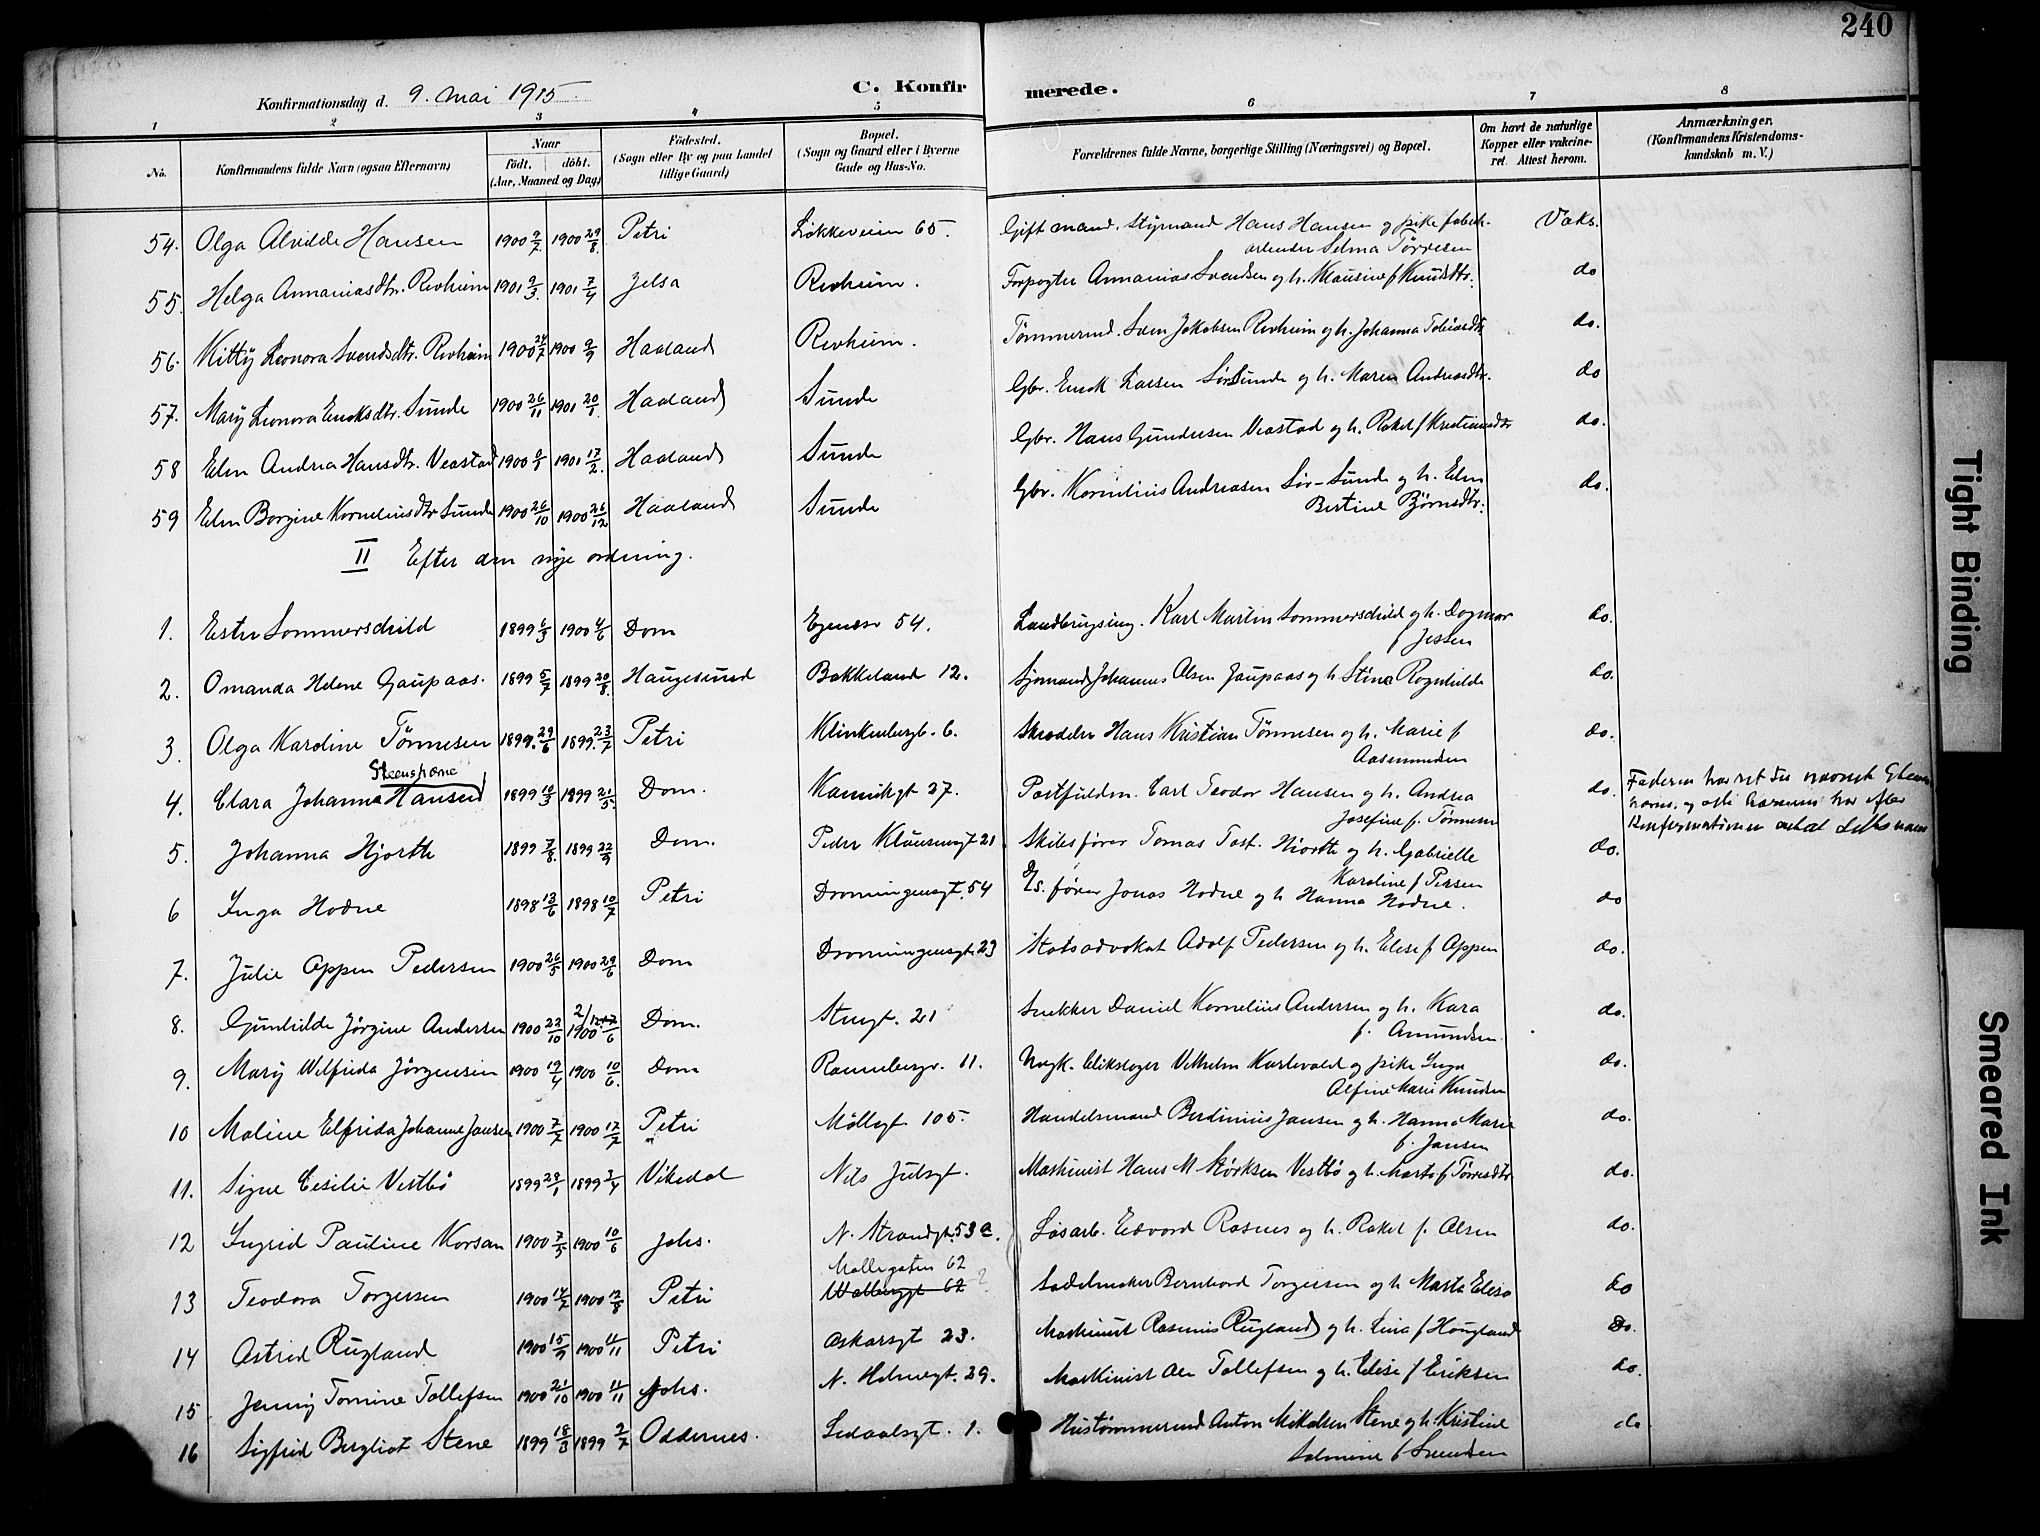 240
Konfirmationsdag d. 9. mai 1915
C. Konfirmerede.
1 2 3 4 5 6 7 8
No.
Konfirmandens fulde Navn (ogsaa Efternavn)
Naar
født. døbt.
(Aar, Maaned og Dag)
Fødested.
(Sogn eller By og paa Landet
tillige Gaard)
Bopæl.
(Sogn og Gaard eller i Byerne
Gade og Hus-No.
Forældrenes fulde Navne, borgerlige Stilling (Næringsvei) og Bopæl.
Om havt de naturlige
Kopper eller vakcine-
ret. Attest herom.
Anmærkninger.
(Konfirmandens Kristendoms-
kundskab m. V.)
54. Olga Alvilde Hansen 1900 9/7 1900 29/8 Petri Løkkeveien 65. Gift mand. Styrmand Hans Hansen og pike fabrik- Vaks.
arbeider Selma Tørresen
55. Helga Annaniasdtr. Revheim 1901 9/3 1901 7/4 Jelsa Revheim. Forpagter Annanias Svendsen og h. Klausine f Knudsdtr. do
56. Kitty Leonora Svendsdtr. Revheim 1900 24/7 1900 9/9 Haaland Revheim. Tømmermd. Sven Jakobsen Revheim og h. Johanna Tobiasdtr do.
57. Mary Leonora Enoksdtr. Sunde 1900 26/11 1901 20/1 Haaland Sunde Gbr. Enok Larsen Sør Sunde og h. Maren Andreasdtr. do
58 Elen Andrea Hansdtr. Veastad 1900 1901 17/2 Haaland Sunde Gbr. Hans Gundersen Veastad og h. Rakel f Kristiansdtr do.
59 Elen Borgine Korneliusdtr Sunde 1900 26/10 1900 26/12 Haaland Sunde Gbr. Kornelius Andreasen Sør-Sunde og h. Elen do.
Bertine Bjørnsdtr.
II Efter den nye ordning.
1. Ester Sommerschild 1899 1900 4/6 Dom Egenesv 54. Landbrugsing. Karl Martin Sommerschild og h. Dagmar do.
f Jessen
2. Omanda Helene Gaupaas. 1899 5/7 1899 20/8 Haugesund Bakkeland 12. Sjømand Johannes Olsen Gaupaas og h Stina Rognhilde do.
3. Olga Karoline Tønnesen 1899. 29/6 1899. 23/7 Petri Klinkenbergb. 6. Skrædder Hans Kristian Tønnesen og h. Marie f do.
Aasmundsen
4. Clara Johanna Hansen 1899 10/3 1899 21/5 Dom. Kannikgt 27. Postfuldm. Carl Teodor Hansen og h. Andrea do.
Josefine f. Tønnesen
5. Johanna Hjorth 1899 7/8 1899 Dom. Peder Klausensgt 21 Skibsfører Tomas Tost. Hiorth og h. Gabrielle do.
Karoline f Persen
6 Inga Hodne 1898 13/6 1898 10/7 Petri Dronningensgt. 54 D/s. fører Jonas Hodne og h Hanna Hodne. do
7. Julie Oppen Pedersen 1900 26/5 1900 29/6 Dom Dronningensgt 23 Statsadvokat Adolf Pedersen og h. Elise f Oppen do.
8. Gunhilde Jørgine Andersen 1900 22/10 1900 Dom. Stengt. 21 Snekker Daniel Kornelius Andersen og h. Kara do.
f. Amundsen
9. Mary Wilfrida Jørgensen 1900 19/4 1900 10/6. Dom Rannebergv. 11. Ungk. blikslager Vilhelm Karlsvald og pike Inga do.
Alfine Marie Knudsen
10 Maline Elfrida Johanne Jansen 1900 7/7 1900 17/7 Petri Møllegt. 105. Handelsmand Berdinius Jansen og h. Hanna Marie do.
f. Jansen
11. Signe Cesilie Vestbø 1899 29/1 1899 3/4 Vikedal Nils Juelsgt. Maskinist Hans M. Størksen Vestbø og h. Marta f Tørresdtr do.
12 Ingrid Pauline Korsan 1900 7/5 1900 10/6 Johs. N. Strandgt. 53 a. Løsarb. Edvard Rasnes og h. Rakel f. Olsen do.
Møllegaten 62
13 Teodora Torgersen 1900 14/7 1900 12/8 Petri Sadelmaker Bernhard Torgersen og h Marta Elisa do
14 Astrid Rugland 1900 15/9 1900 11/11 Petri Oskarsgt 23. Maskinist Rasmus Rugland og h. Lina f Hougland do.
15. Jenny Tomine Tollefsen 1900 21/10 1900 11/11 Johs. N. Holmegt. 29. Maskinist Ole Tollefsen og h. Elise f Eriksen do.
16 Sigfrid Bergliot Stene 1899 18/3 1899 2/7 Oddernes. Ledaalsgt. 1. Hustømmermd Anton Mikalsen Stene og h. Kristine do
Salmine f Svendsen
Tight Binding
Smeared Ink